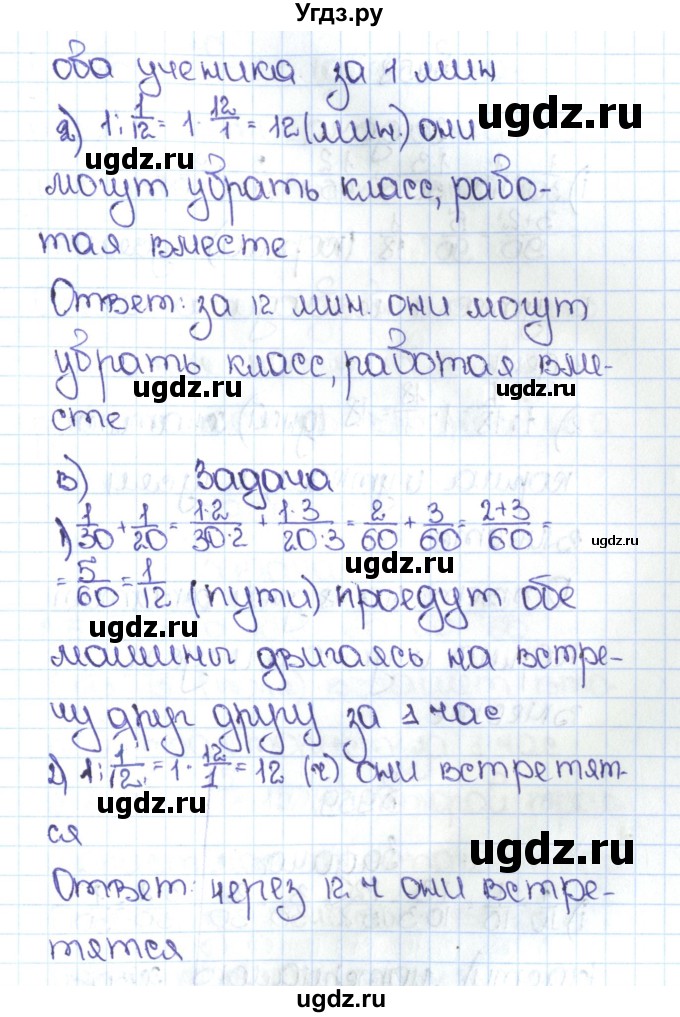 Угдз.ру
ова ученика за 1 мин
2) 1:1/12=1·12/1=12(мин.) они
ugdz.ru
ugdz.ru
могут убрать класс, рабо-
тая вместе
Ответ: за 12 мин. они могут
убрать класс, работая вме-
ugdz.ru
ugdz.ru
сте
в) Задача
1) 1/30+1/20=1·2/30·2+1·3/20·3=2/60+3/60=2+3/60=
ugdz.ru
ugdz.ru
=5/60=1/12 (пути) проедут обе
ugdz.ru
машины двигаясь на встре-
чу друг другу за 1 час
ugdz.ru
2) 1:1/12=1·12/1=12 (ч) они встретят-
ugdz.ru
ugdz.ru
ся
ugdz.ru
Ответ: через 12 ч они встре-
тятся
ugdz.ru
ugdz.ru